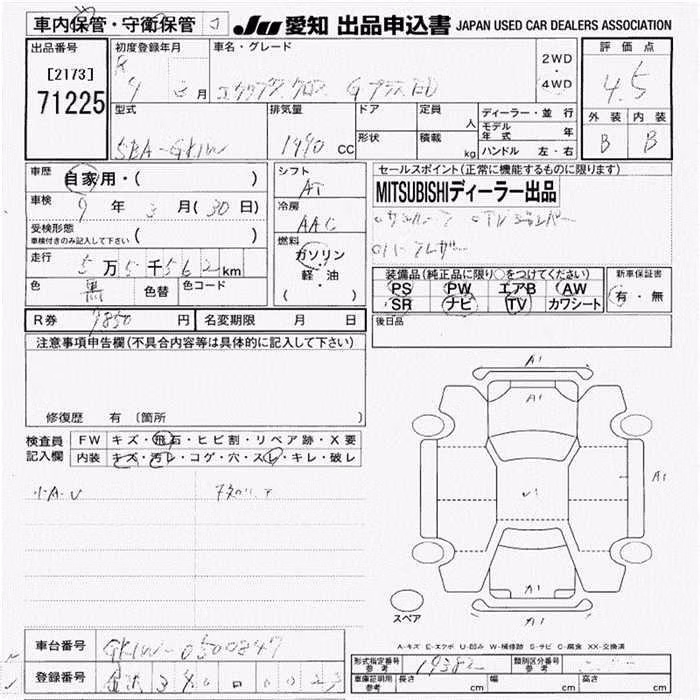 車内保管・守衛保管
JU 愛知 出品申込書 JAPAN USED CAR DEALERS ASSOCIATION
出品番号
[2173]
71225
初度登録年月
9 3 月
車名・グレード
エクリプス クロス Gプラス
2WD
・
4WD
評価点
4.5
外装 内装
B B
型式
5BA-GK1W
排気量
1490 CC
ドア
形状
定員 人
積載 kg
ディーラー・並行
モデル年式 年
ハンドル 左・右
車歴
自家用・( )
車検
9 年 3 月 (30 日)
受検形態
車検付きのみ記入して下さい ( )
走行
5 万 5 千 5 6 2 km
色
黒
色替
色コード
シフト
AT
冷房
AAC
燃料
ガソリン
・
軽・油
( )
セールスポイント (正常に機能するものに限ります)
MITSUBISHIディーラー出品
装備品 (純正品に限り○をつけてください)
PS PW エアB AW
SR ナビ TV カワシート
新車保証書
有・無
後日品
R券 円
名変期限 月 日
注意事項申告欄 (不具合内容等は具体的に記入して下さい)
修復歴 有 (箇所 )
検査員記入欄
FW キズ・飛石・ヒビ割・リペア跡・X要
内装 キズ・汚レ・コゲ・穴・スレ・キレ・破レ
小A・U
A1
A1
A1
A1
A1
スペア
A-キズ E-エクボ U-凹み W-補修跡 S-サビ C-腐食 XX-交換済
車台番号
GK1W-0500847
登録番号
型式指定番号 参考
19382
類別区分番号 参考
車庫証明用 参考
長さ cm
幅 cm
高さ cm